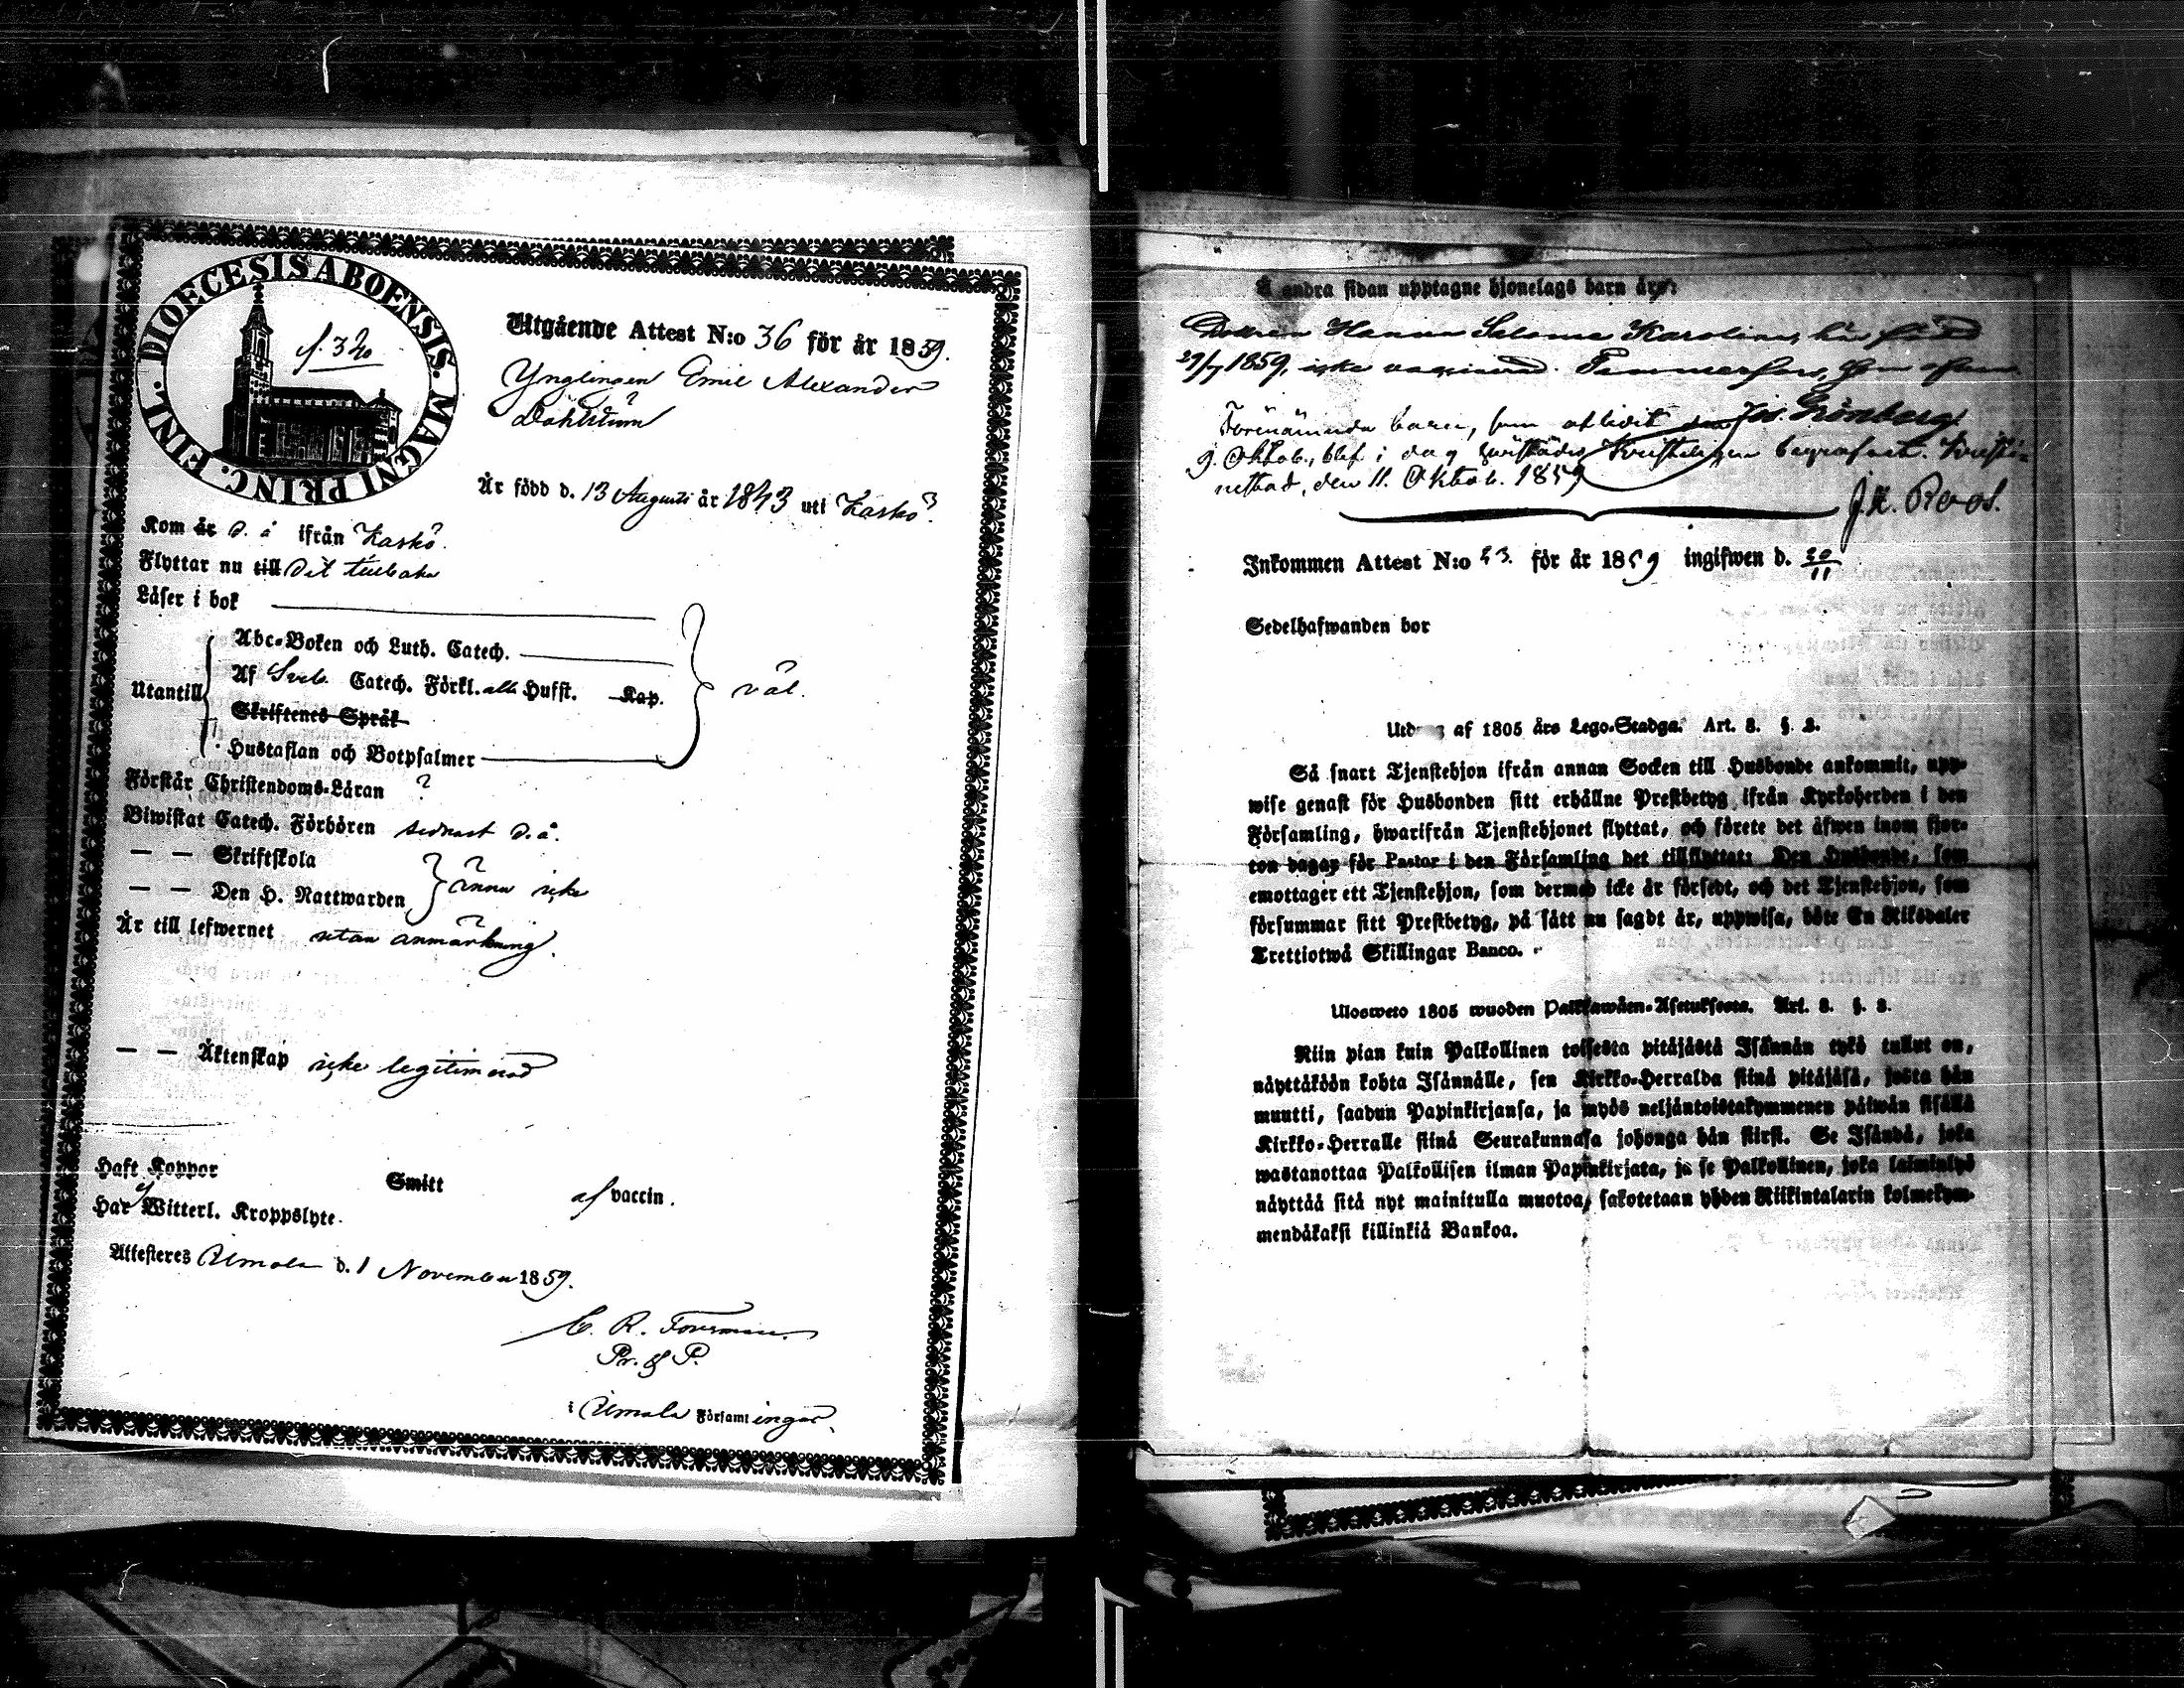 DIOECESIS ABOENSIS. MAGNI PRINC. FINL.
Utgående Attest N:o 36 för år 1859.
Ynglingen Emil Alexander
Dahlström
Är född d. 13 Augusti år 1843 uti Kaskö.
Kom år d. å ifrån Kaskö.
Flyttar nu till Dit tillbaka
Läser i bok
Abc-Boken och Luth. Catech.
Utantill
Af Sveb. Catech. Förkl. alla Hufst. Kap.
väl.
Skriftenes Språk
Hustaflan och Botpsalmer
Förstår Christendoms-Läran
Biwistat Catech. Förhören sednast d. å.
— — Skriftskola
ännu icke
— — Den H. Nattwarden
Är till lefwernet utan anmärkning.
— — Äktenskap icke legitimerad
Haft Koppor Smitt af vaccin.
Har ej Witterl. Kroppslyte.
Attesteres d. 1 November 1859.
C. R. Forsman
Pr. & P.
i Församlingar.
Å andra sidan upptagne hjonelags barn äro:
Hanna Salome Karolina, här född
29/7 1859, icke vaccinerad.
Jos. Grönberg.
Förenämnda barn, som aflidit den
9. Oktob., blef i dag härstädes Kristeligen begrafvet. Kristi-
nestad, den 11. Oktob. 1859
J. R. Roos.
Inkommen Attest N:o 23. för år 1859 ingifwen d. 20/11
Sedelhafwanden bor
af 1805 års Lego-Stadga. Art. 8. §. 2.
Så snart Tjenstehjon ifrån annan Socken till Husbonde ankommit, upp-
wise genast för Husbonden sitt erhållne Prestbetyg ifrån Kyrkoherden i den
Församling, hwarifrån Tjenstehjonet flyttat, och förete det äfwen inom fjor-
ton dagar för Pastor i den Församling det tillflyttat: Den Husbonde, som
emottager ett Tjenstehjon, som dermed icke är försedt, och det Tjenstehjon, som
försummar sitt Prestbetyg, på sätt nu sagdt är, uppwisa, böte En Riksdaler
Trettiotwå Skillingar Banco.
Ulosweto 1805 wuoden Palkkawäen-Asetuksesta. Art. 8. §. 2.
Niin pian kuin Palkollinen toisesta pitäjästä Isännän tykö tullut on,
näyttäköön kohta Isännälle, sen Kirkko-Herralda siinä pitäjäsä, josta hän
muutti, saadun Papinkirjansa, ja myös neljäntoistakymmenen päiwän sisällä
Kirkko-Herralle siinä Seurakunnasa johonga hän siirsi. Se Isändä, joka
wastanottaa Palkollisen ilman Papinkirjata, ja se Palkollinen, joka laiminlyö
näyttää sitä nyt mainitulla muotoa, sakotetaan yhden Riikintalarin kolmekym-
mendäkaksi killinkiä Bankoa.